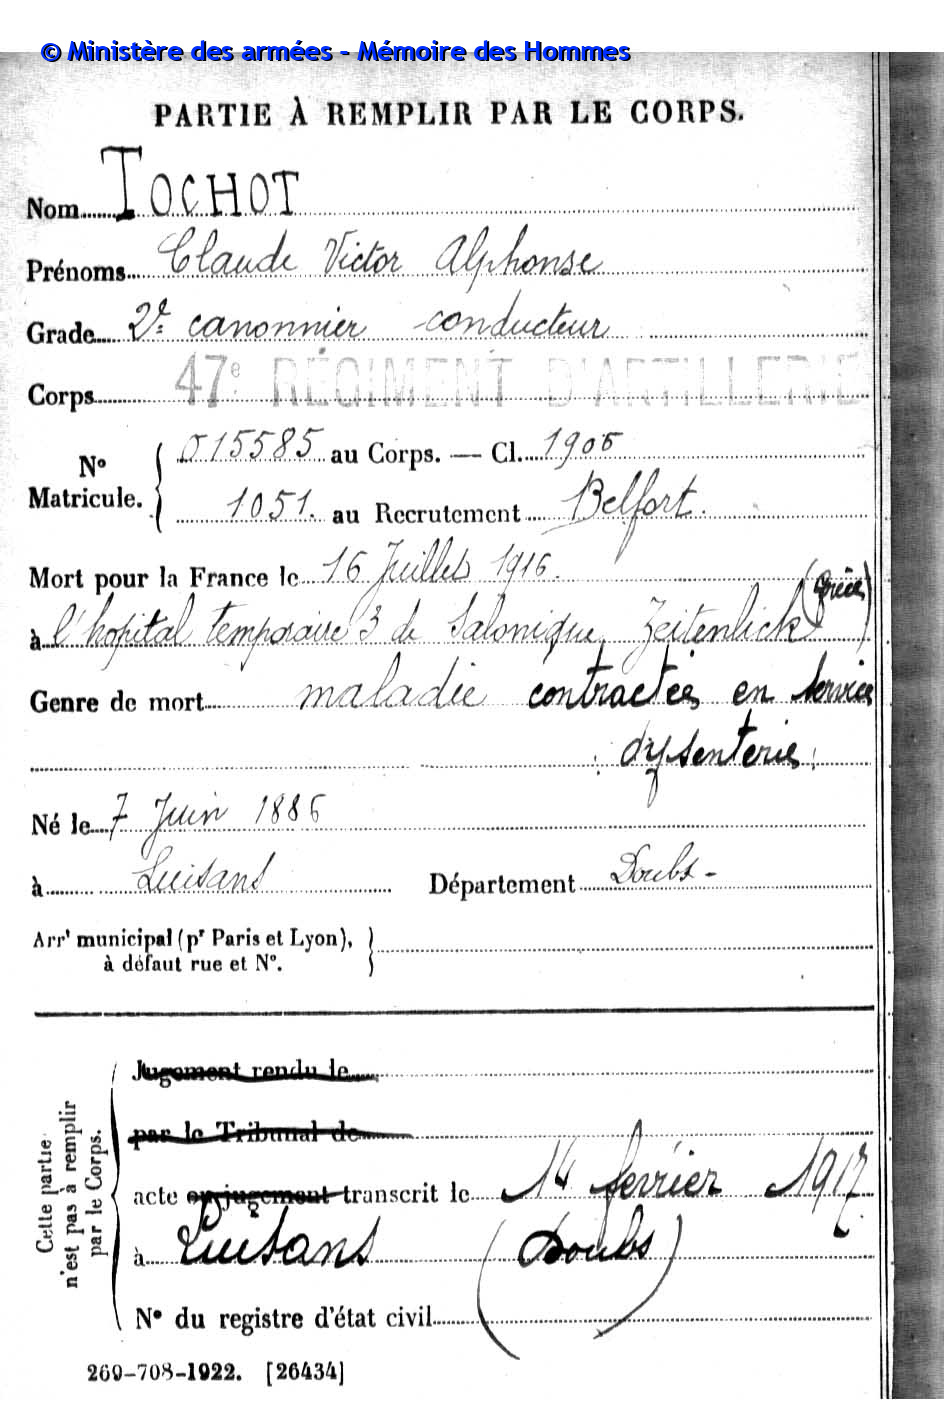 © Ministère des armées - Mémoire des Hommes
PARTIE À REMPLIR PAR LE CORPS.
Nom TOCHOT
Prénoms Claude Victor Alphonse
Grade 2e canonnier conducteur
Corps 47e RÉGIMENT D'ARTILLERIE
N° Matricule. 015585 au Corps. — Cl. 1906
1051. au Recrutement Belfort.
Mort pour la France le 16 Juillet 1916.
à l'hopital temporaire 3 de Salonique, Zeitenlick (Grèce)
Genre de mort maladie contractée en service
dysenterie.
Né le 7 Juin 1886
à Luisans Département Doubs -
Arrt municipal (pr Paris et Lyon),
à défaut rue et N°.
Cette partie
n'est pas à remplir
par le Corps.
Jugement rendu le
par le Tribunal de
acte ou jugement transcrit le 14 fevrier 1917
à Luisans (Doubs)
N° du registre d'état civil
269-708-1922. [26434]